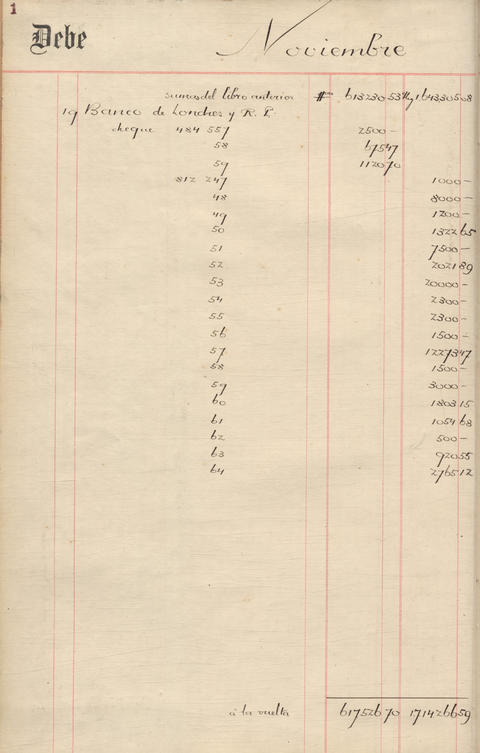 1
Debe Noviembre
sumas del libro anterior # 613230 53 1643305 08
19 Banco de Londres y R. P.
cheque 484 557 2500 -
58 675 47
59 1120 70
812 247 1000 -
48 8000 -
49 1200 -
50 1322 65
51 7500 -
52 2021 89
53 20000 -
54 2300 -
55 2300 -
56 1500 -
57 12273 47
58 1500 -
59 3000 -
60 1803 15
61 1054 68
62 500 -
63 920 55
64 2765 12
á la vuelta 617526 70 1714266 59